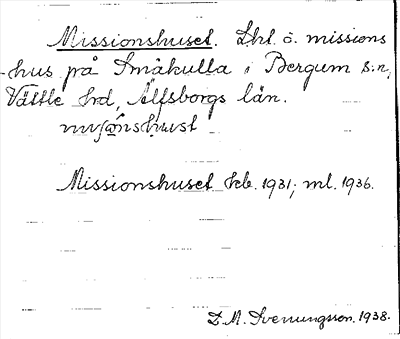 Missionshuset. Lht. o. missions
-hus på Småkulla i Bergum s:n,
Vättle hd, Älfsborgs län.
Missionshuset kb. 1931; ml. 1936.
D. M. Svenungsson. 1938.